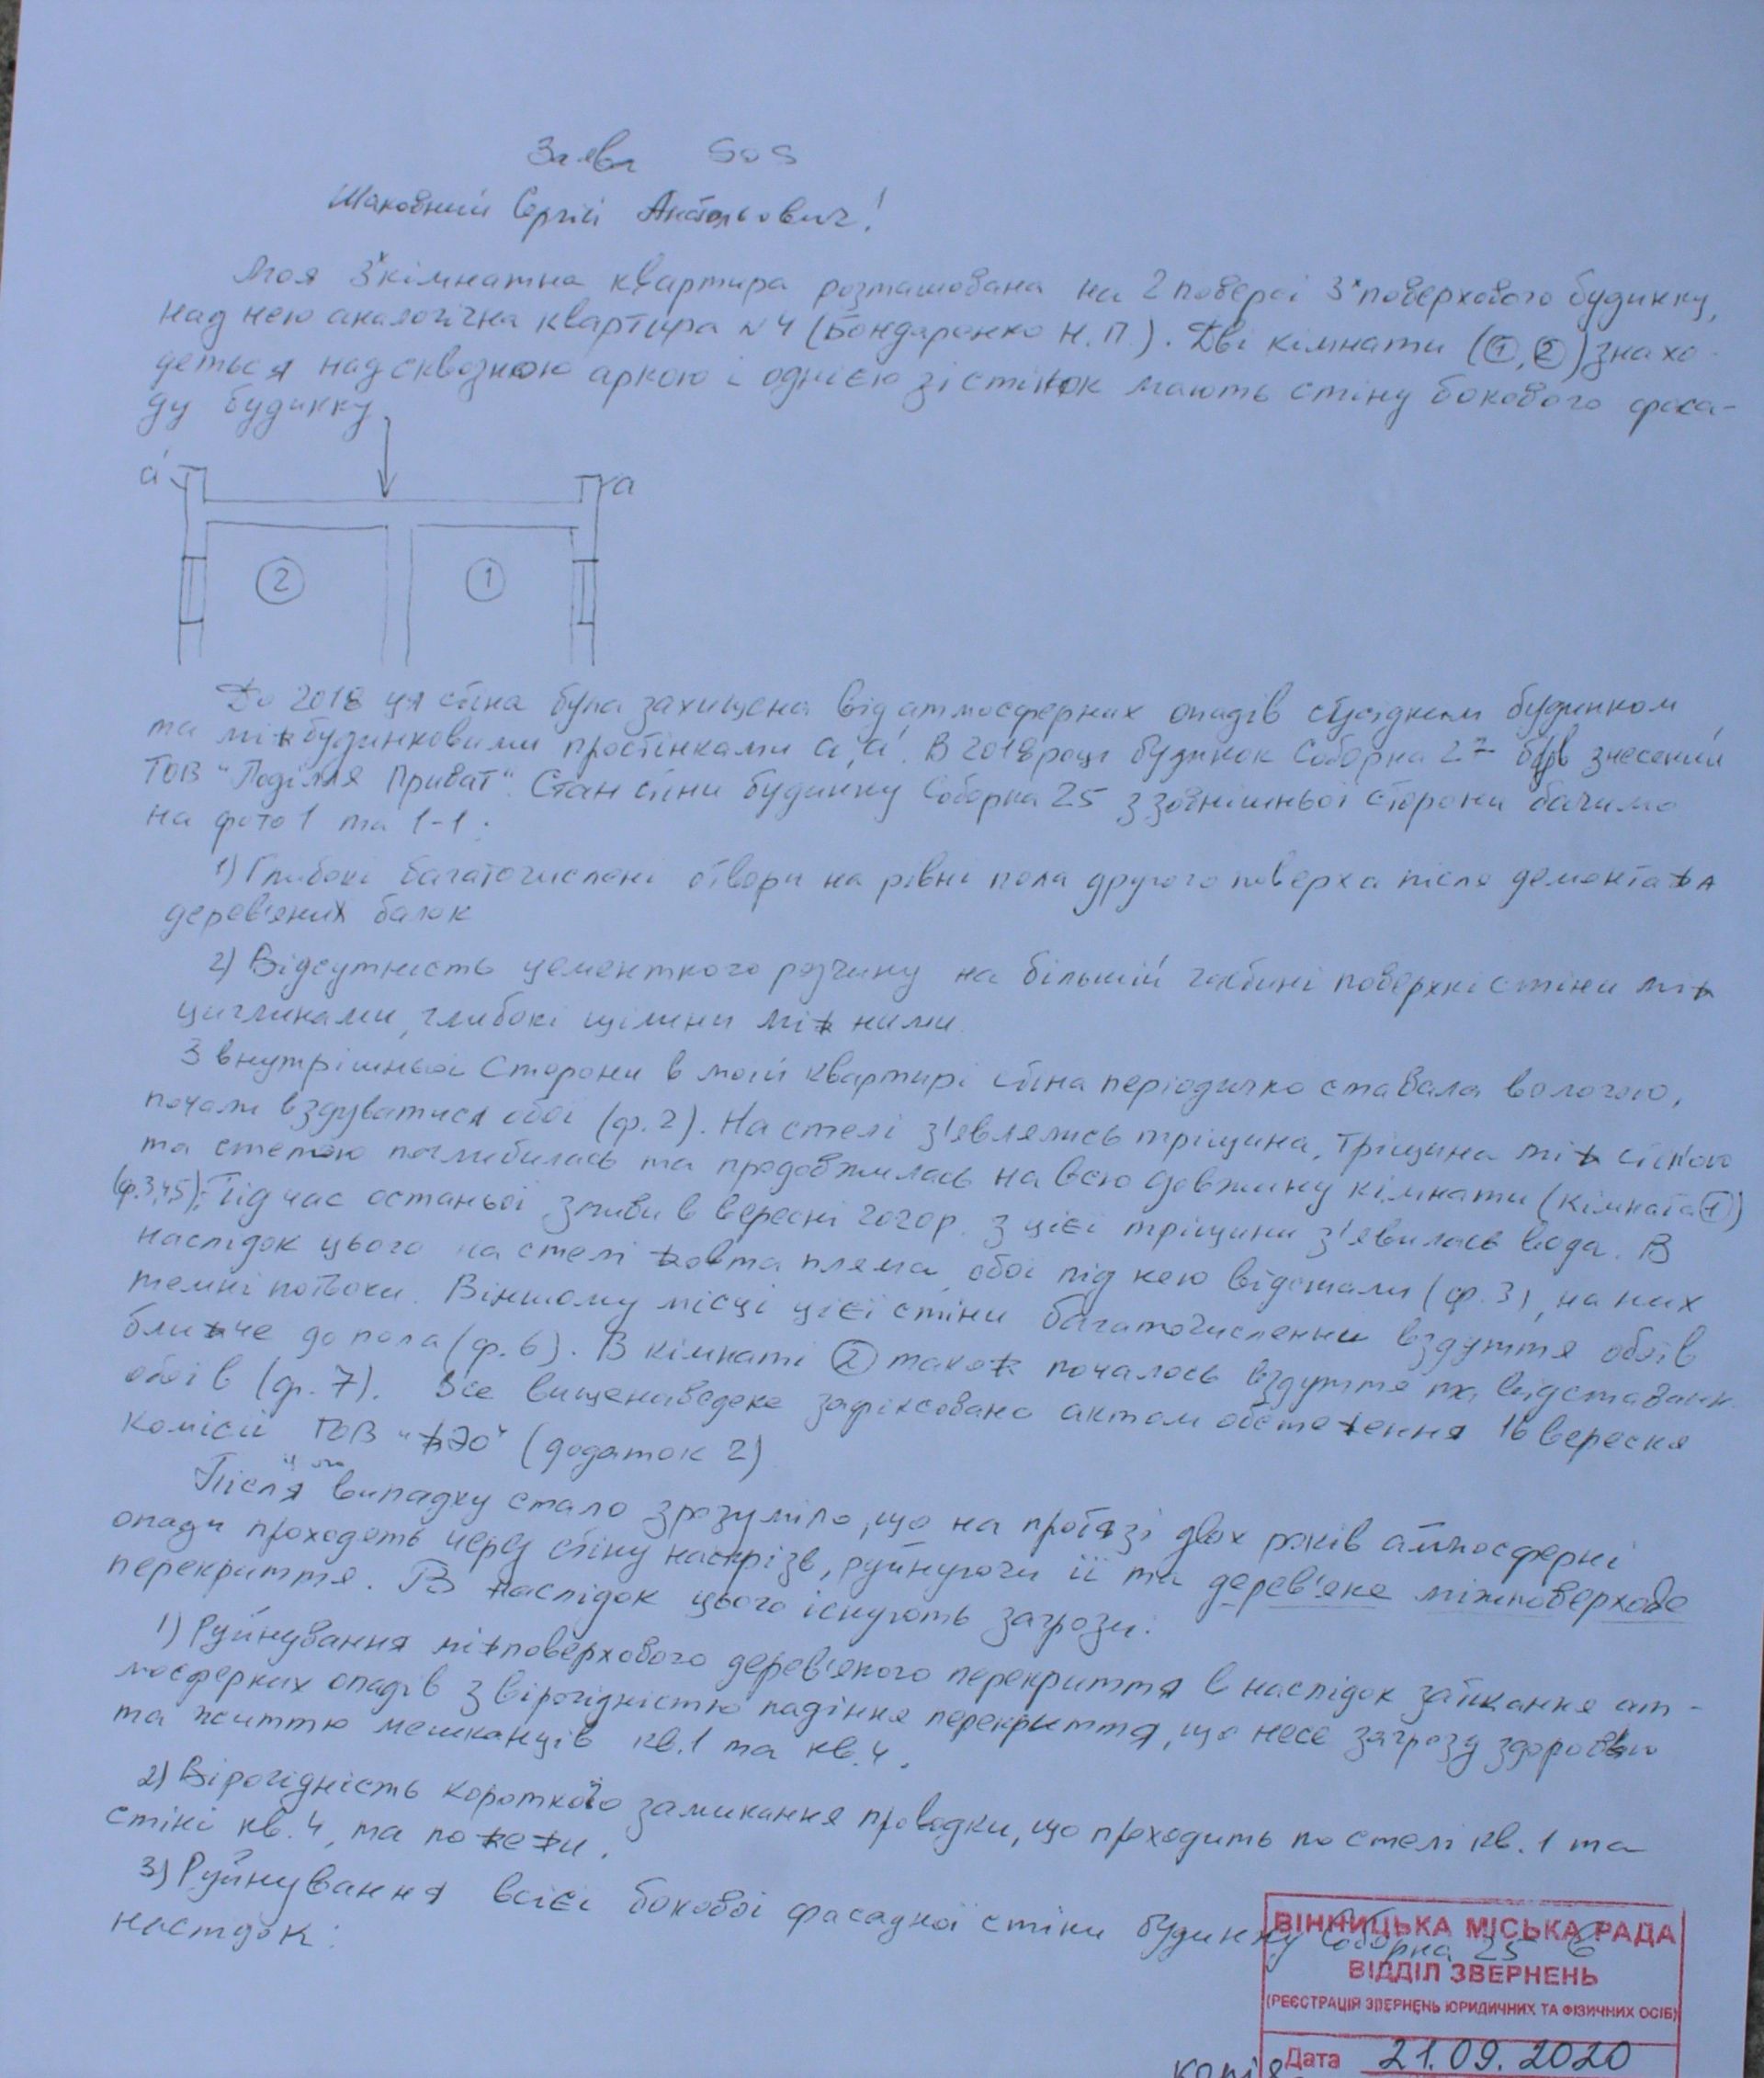 Заява SOS
Шановний Сергій Анатольович!
Моя 3х кімнатна квартира розташована на 2 поверсі 3х поверхового будинку,
над нею аналогічна квартира №4 (Бондаренко Н.П.). Дві кімнати (1, 2) знахо-
деться над сквозною аркою і однією зі стінок мають стіну бокового фаса-
ду будинку
a' a
2 1
До 2018 ця стіна була захищена від атмосферних опадів сусіднім будинком
та міжбудинковими простінками a, a'. В 2018 році будинок Соборна 27 був знесений
ТОВ "Поділля Приват". Стан стіни будинку Соборна 25 з зовнішньої сторони бачимо
на фото 1 та 1-1:
1) Глибокі багаточислені отвори на рівні пола другого поверха після демонтажа
дерев'яних балок
2) Відсутність цементного розчину на більшій частині поверхні стіни між
циглинами, глибокі щілини між ними.
З внутрішньої сторони в моїй квартирі стіна періодично ставала вологою,
почали вздуватися обої (ф.2). На стелі з'являлись тріщина, тріщина між стіною
та стелею поглибилась та продовжилась на всю довжину кімнати (кімната 1)
(ф.3,4,5). Під час останьої зливи в вересні 2020р. з цієї тріщини з'явилась вода. В
наслідок цього на стелі жовта пляма, обої під нею відстали (ф.3), на них
темні потьоки. В іншому місці цієї стіни багаточисленни вздуття обоїв
ближче до пола (ф.6). В кімнаті 2 також почалось вздуття та відставання
обоїв (ф.7). Все вищенаведене зафіксовано актом обстеження 16 вересня
комісії ТОВ "ЖЭО" (додаток 2)
Після цього випадку стало зрозуміло, що на протязі двох років атмосферні
опади проходять через стіну наскрізь, руйнуючи її та дерев'яне міжповерхове
перекриття. В наслідок цього існують загрози:
1) Руйнування міжповерхового дерев'яного перекриття в наслідок затікання ат-
мосферних опадів з вірогідністю падіння перекриття, що несе загрозу здоров'ю
та життю мешканців кв.1 та кв.4.
2) Вірогідність короткого замикання проводки, що проходить по стелі кв.1 та
стіні кв.4, та пожежи.
3) Руйнування всієї бокової фасадної стіни будинку Соборна 25 в
наслідок:
ВІННИЦЬКА МІСЬКА РАДА
ВІДДІЛ ЗВЕРНЕНЬ
(РЕЄСТРАЦІЯ ЗВЕРНЕНЬ ЮРИДИЧНИХ ТА ФІЗИЧНИХ ОСІБ)
копія Дата 21.09.2020